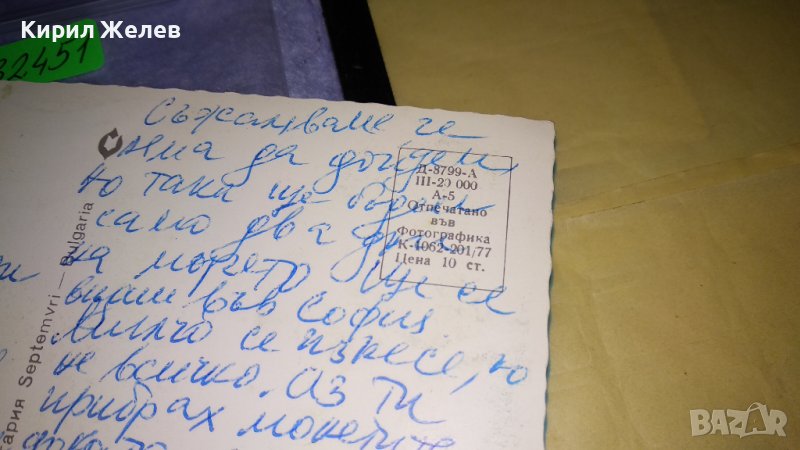 Кирил Желев
32451
Съжаляваме че
няма да дойдем
но така ще бъдем
само два дни
на морето Ще се
видим във София
Минчо се изнесе, но
не всичко. Аз ти
прибрах монетите
Д-8799-А
III-20 000
А-5
Отпечатано
във
Фотографика
К-1062-201/77
Цена 10 ст.
гария Septemvri — Bulgaria
BAZAR